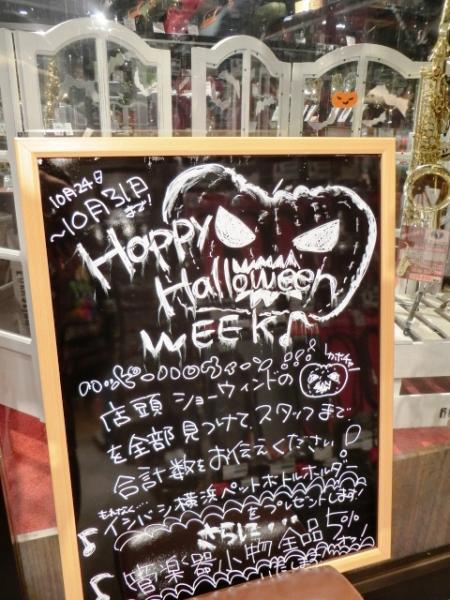 10月24日
~10月31日
まで!
Happy
Halloween
WEEK♪
店頭 ショーウィンドの
カボチャ
を全部見つけて、スタッフまで
合計数をお伝えください!
もれなく…
♪イシバシ横浜ペットボトルホルダー
をプレゼントします!
さらに…
♪管楽器小物全品5%